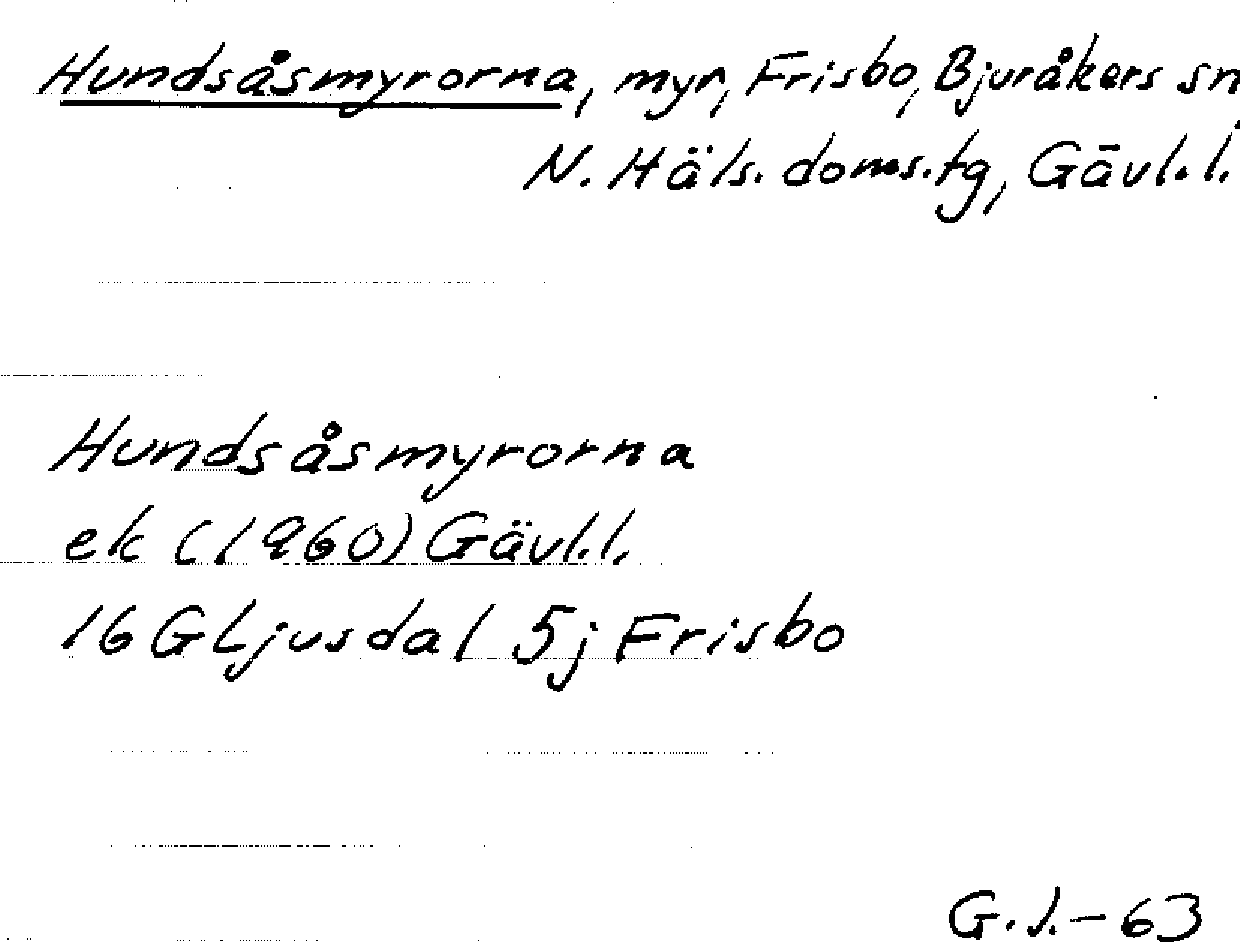 Hundsåsmyrorna, myr, Frisbo, Bjuråkers sn
N. Häls. doms.tg, Gävl.l.
Hundsåsmyrorna
ek (1960) Gävl.l.
16 G Ljusdal 5j Frisbo
G.J.-63